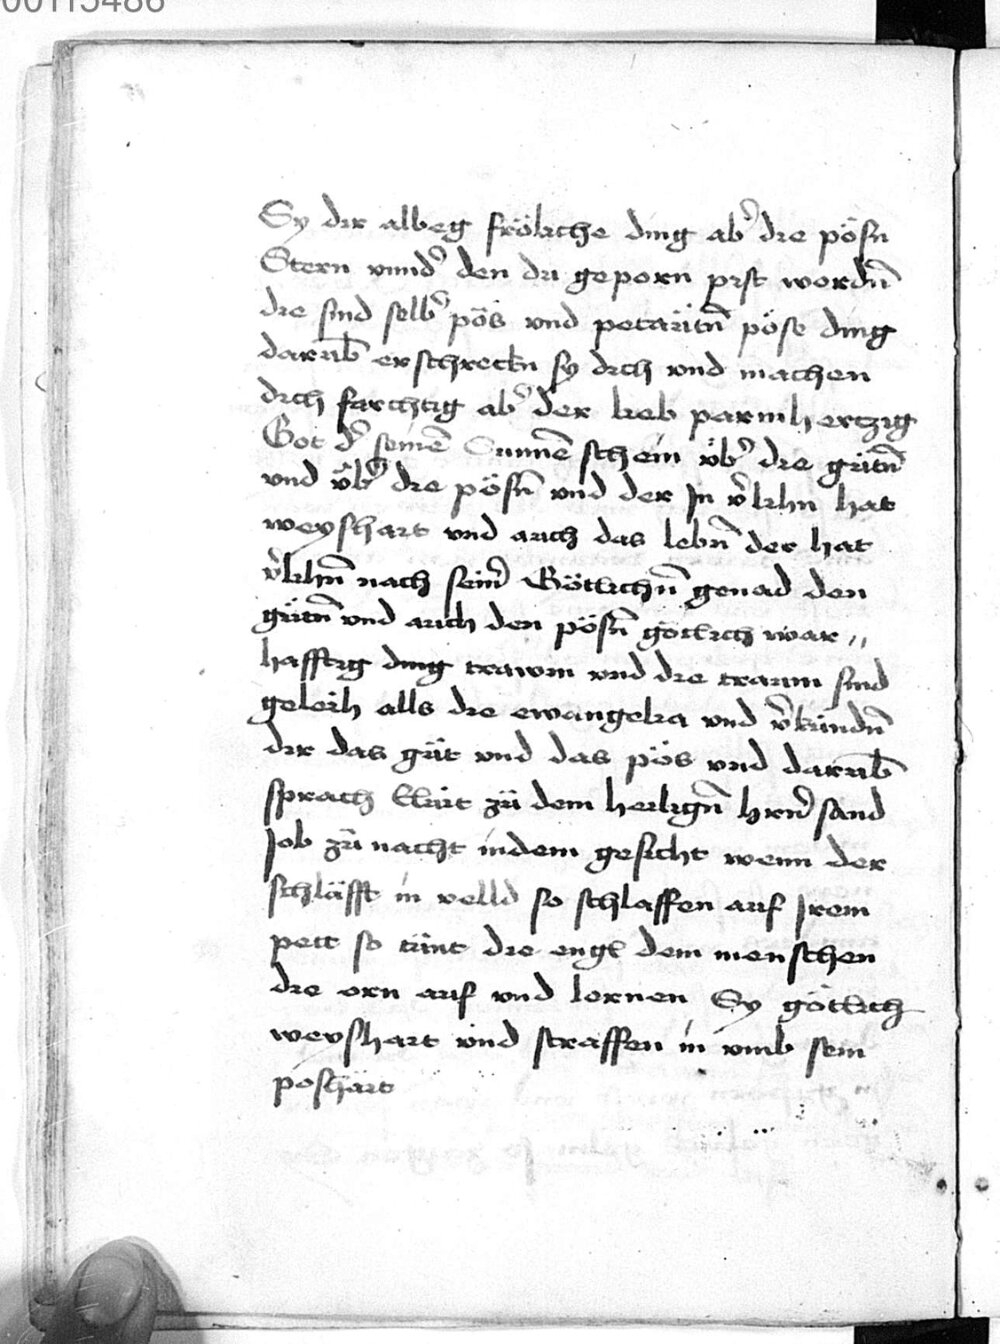 00115486
Sy dir albeg fröliche ding ab̉ die pösn
Stern vnnd̉ den du geporn pist wordn̄
die sind selb̉ pös vnd petaütn̄ pöse ding
darub̄ erschreckn sy dich vnd machen
dich farchtig ab̉ der lieb parmhertzig
Got d̉ seinē Sunnē schein v̈b̉ die gütn̄
vnd v̈b̉ die pösn̄ vnd der Jn v̉lihn hat
weyshait vnd auch das lebn̄ der hat
v̉lihn̄ nach sein̉ Götlichn̄ genad den
gütn̄ vnd auch den pösn̄ götlich war〃
hafftig ding trawm vnd die traum sind
geleih alls die ewangelia vnd v̉kündn̄
dir das güt vnd das pös vnd darub̄
sprach Eliüt zü dem heilign̄ hrn̄ sand
Job zü nacht indem gesicht wenn der
schläfft in velld so schlaffen auf Jrem
pett so tünt die engl dem menschen
die orn auf vnd lernen Sy götlich
weyshait vnd straffen in vmb sein
poshait